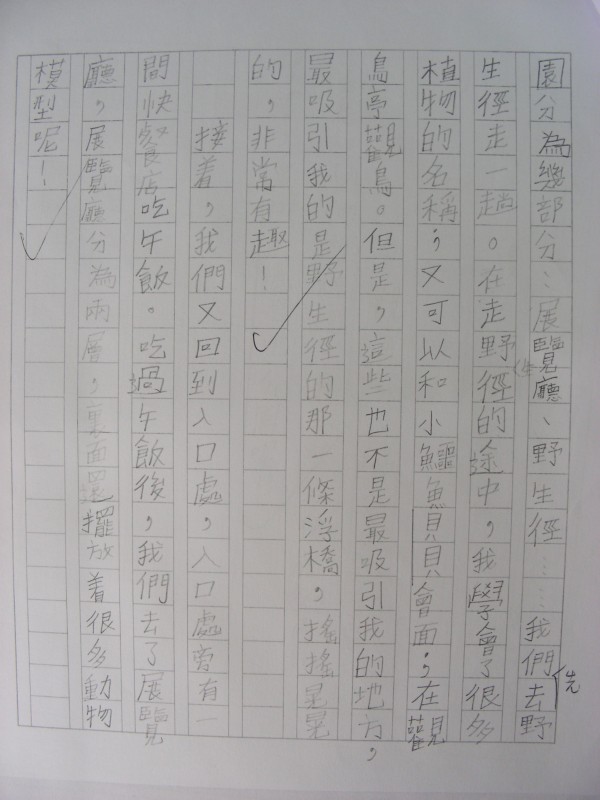 園分為幾部分：展覽廳、野生徑……我們先去野
生徑走一趟。在走野生徑的途中，我學會了很多
植物的名稱；又可以和小鱷魚貝貝會面；在觀
鳥亭觀鳥。但是，這些也不是最吸引我的地方，
最吸引我的是野生徑的那一條浮橋，搖搖晃晃
的，非常有趣！
接着，我們又回到入口處，入口處旁有一
間快餐店吃午飯。吃過午飯後，我們去了展覽
廳，展覽廳分為兩層，裏面還擺放着很多動物
模型呢！